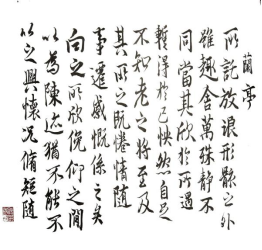 蘭亭
一所託放浪形骸之外
雖趣舍萬殊靜不
同當其欣於所遇
暫得於己快然自足
不知老之將至及
其所之既惓情隨
事遷感慨係之矣
向之所欣俛仰之閒
以為陳迹猶不能不
以之興懷況脩短隨